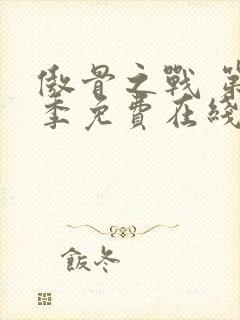 傲骨之戰 第
季免費在綫
飯冬